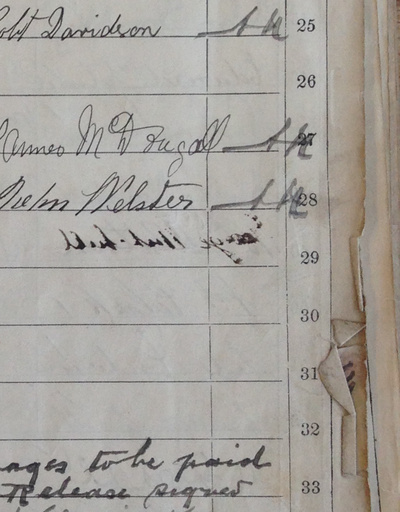 Robt Davidson 25
26
James McDougall 27
John Webster 28
29
30
31
32
ages to be paid
Release signed 33